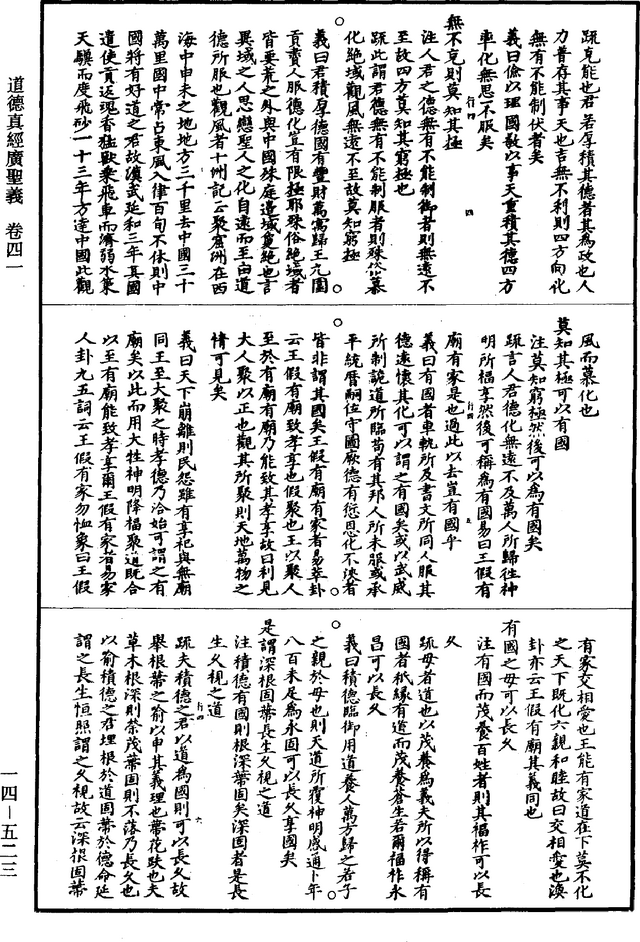 疏克能也君若厚積其德者其為政也人
力普存其事天也吉無不利則四方向化
無有不能制伏者矣
義曰儉以理國敬以事天重積其德四方
率化無思不服矣
無不克則莫知其極
注人君之德無有不能制御者則無遠不
至故四方莫知其窮極也
疏此謂君德無有不能制服者則殊俗慕
化絕域觀風無遠不至故莫知窮極
義曰君積厚德國有豐財萬寓歸王九圍
貢賮人服德化宜有限極耶殊俗絕域者
皆要荒之外與中國殊庭邊域敻絕也言
異域之人思戀聖人之化自遠而至由道
德所服也觀風者十洲記云聚窟洲在西
海中申未之地地方三千里去中國三十
萬里國中常占東風入律百旬不休則中
國將有好道之君故漢武延和三年其國
遣使貢返魂香猛獸乘飛車而濟弱水策
天驥而度飛砂一十三年方達中國此觀
道德真經廣聖義 卷四一
風而慕化也
莫知其極可以有國
注莫知窮極然後可以為有國矣
疏言人君德化無遠不及萬人所歸往神
明所福享然後可稱為有國易曰王假有
廟有家是也過此以去豈有國乎
義曰有國者車軌所及書文所同人服其
德遠懷其化可以謂之有國矣或以武威
所制詭道所臨苟有其邦人所未服或承
平統曆嗣位守圖厥德有愆恩化不洽者
皆非謂其國矣王假有廟有家者易萃卦
云王假有廟致孝享也假聚也王以聚人
至於有廟有廟乃能致其孝享故曰利見
大人聚以正也觀其所聚則天地萬物之
情可見矣
義曰天下崩離則民怨雖有享祀與無廟
同王至大聚之時孝德乃洽始可謂之有
廟矣以此而用大牲神明降福聚道既合
以至有廟能致孝享爾王假有家者易家
人卦九五詞云王假有家勿恤象曰王假
有家交相愛也王能有家道在下莫不化
之天下既化六親和睦故曰交相愛也渙
卦亦云王假有廟其義同也
有國之母可以長久
注有國而茂養百姓者則其福祚可以長
久
疏母者道也以茂養為義夫所以得稱有
國者秖緣有道而茂養蒼生若爾福祚永
昌可以長久
義曰積德臨御用道養人萬方歸之若子
之親於母也則天道所覆神明感通卜年
八百未足為永固可以長久享國矣
是謂深根固蔕長生久視之道
注積德有國則根深蔕固矣深固者是長
生久視之道
疏夫積德之君以道為國則可以長久故
舉根蔕之喻以申其義理也蔕花趺也夫
草木根深則榮茂蔕固則不落乃長久也
以喻積德之君埋根於道固蔕於德命延
謂之長生恒照謂之久視故云深根固蔕
一四－五二三